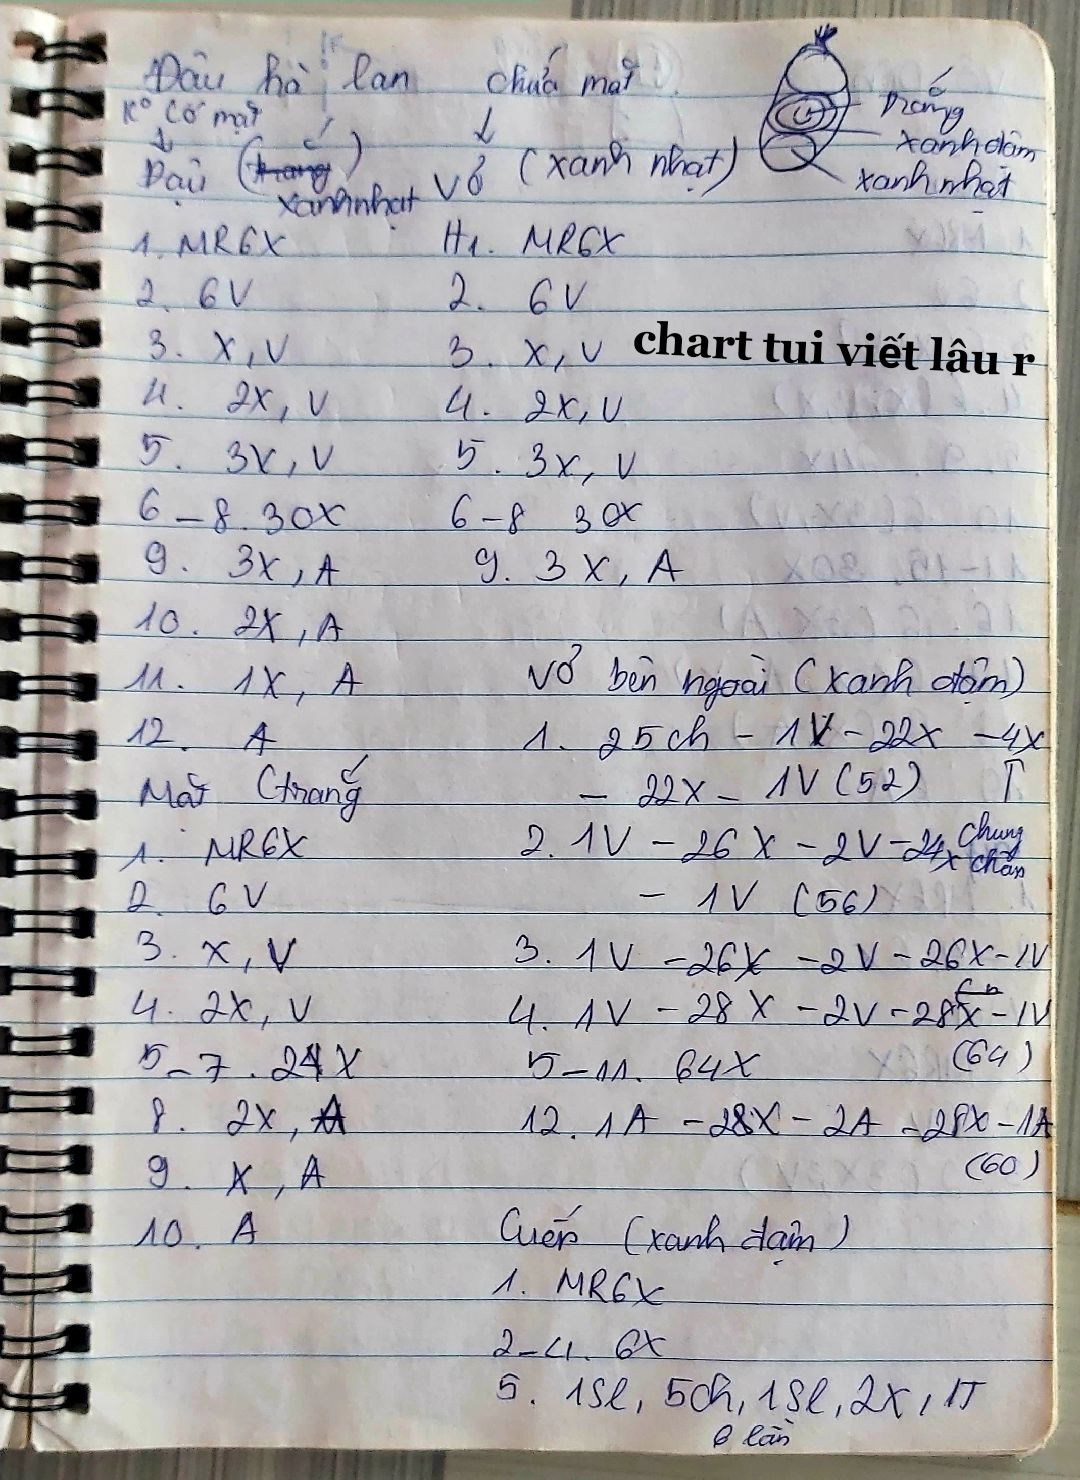 Đậu hà lan
K° có mặt
↓
Đậu (trắng)
xanh nhạt
1. MR6X
2. 6V
3. X, V
4. 2X, V
5. 3X, V
6-8. 30X
9. 3X, A
10. 2X, A
11. 1X, A
12. A
Mắt (trắng
1. MR6X
2. 6V
3. X, V
4. 2X, V
5-7. 24X
8. 2X, A
9. X, A
10. A
chứa mắt
↓
Vỏ (xanh nhạt)
H1. MR6X
2. 6V
3. X, V
4. 2X, V
5. 3X, V
6-8 30X
9. 3X, A
trắng
xanh đậm
xanh nhạt
chart tui viết lâu r
Vỏ bên ngoài (xanh đậm)
1. 25ch - 1V - 22X - 4X
- 22X - 1V (52) ↑
chung
chân
2. 1V - 26X - 2V - 24X
- 1V (56)
3. 1V - 26X - 2V - 26X - 1V
4. 1V - 28X - 2V - 28X - 1V
(64)
5-11. 64X
12. 1A - 28X - 2A - 28X - 1A
(60)
Cuến (xanh đậm)
1. MR6X
2-4. 6X
5. 1Sl, 5ch, 1Sl, 2X, 1T
6 lần